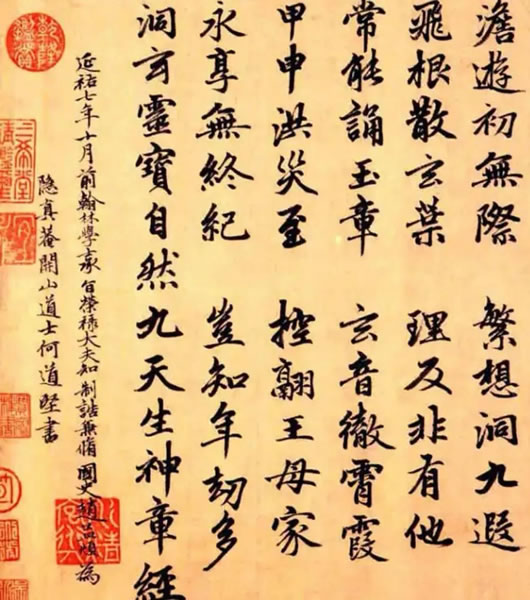 澹遊初無際　繁想洞九遐
飛根散玄葉　理反非有他
常能誦玉章　玄音徹霄霞
甲申洪災至　控翮王母家
永享無終紀　豈知年劫多
洞玄靈寶自然九天生神章經
延祐七年十月前翰林學承旨榮祿大夫知制誥兼脩國史趙孟頫為
隱真菴開山道士何道堅書
乾隆鑑賞
三希堂